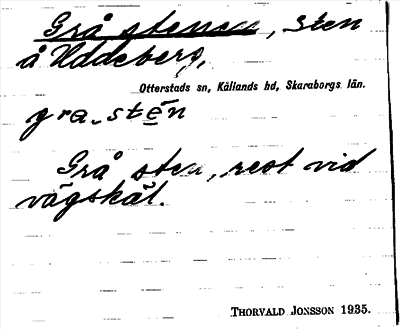 Grå stenen, sten
å Uddeberg,
Otterstads sn, Kållands hd, Skaraborgs län.
gra-stén
Grå sten, rest vid
vägskäl.
THORVALD JONSSON 1935.